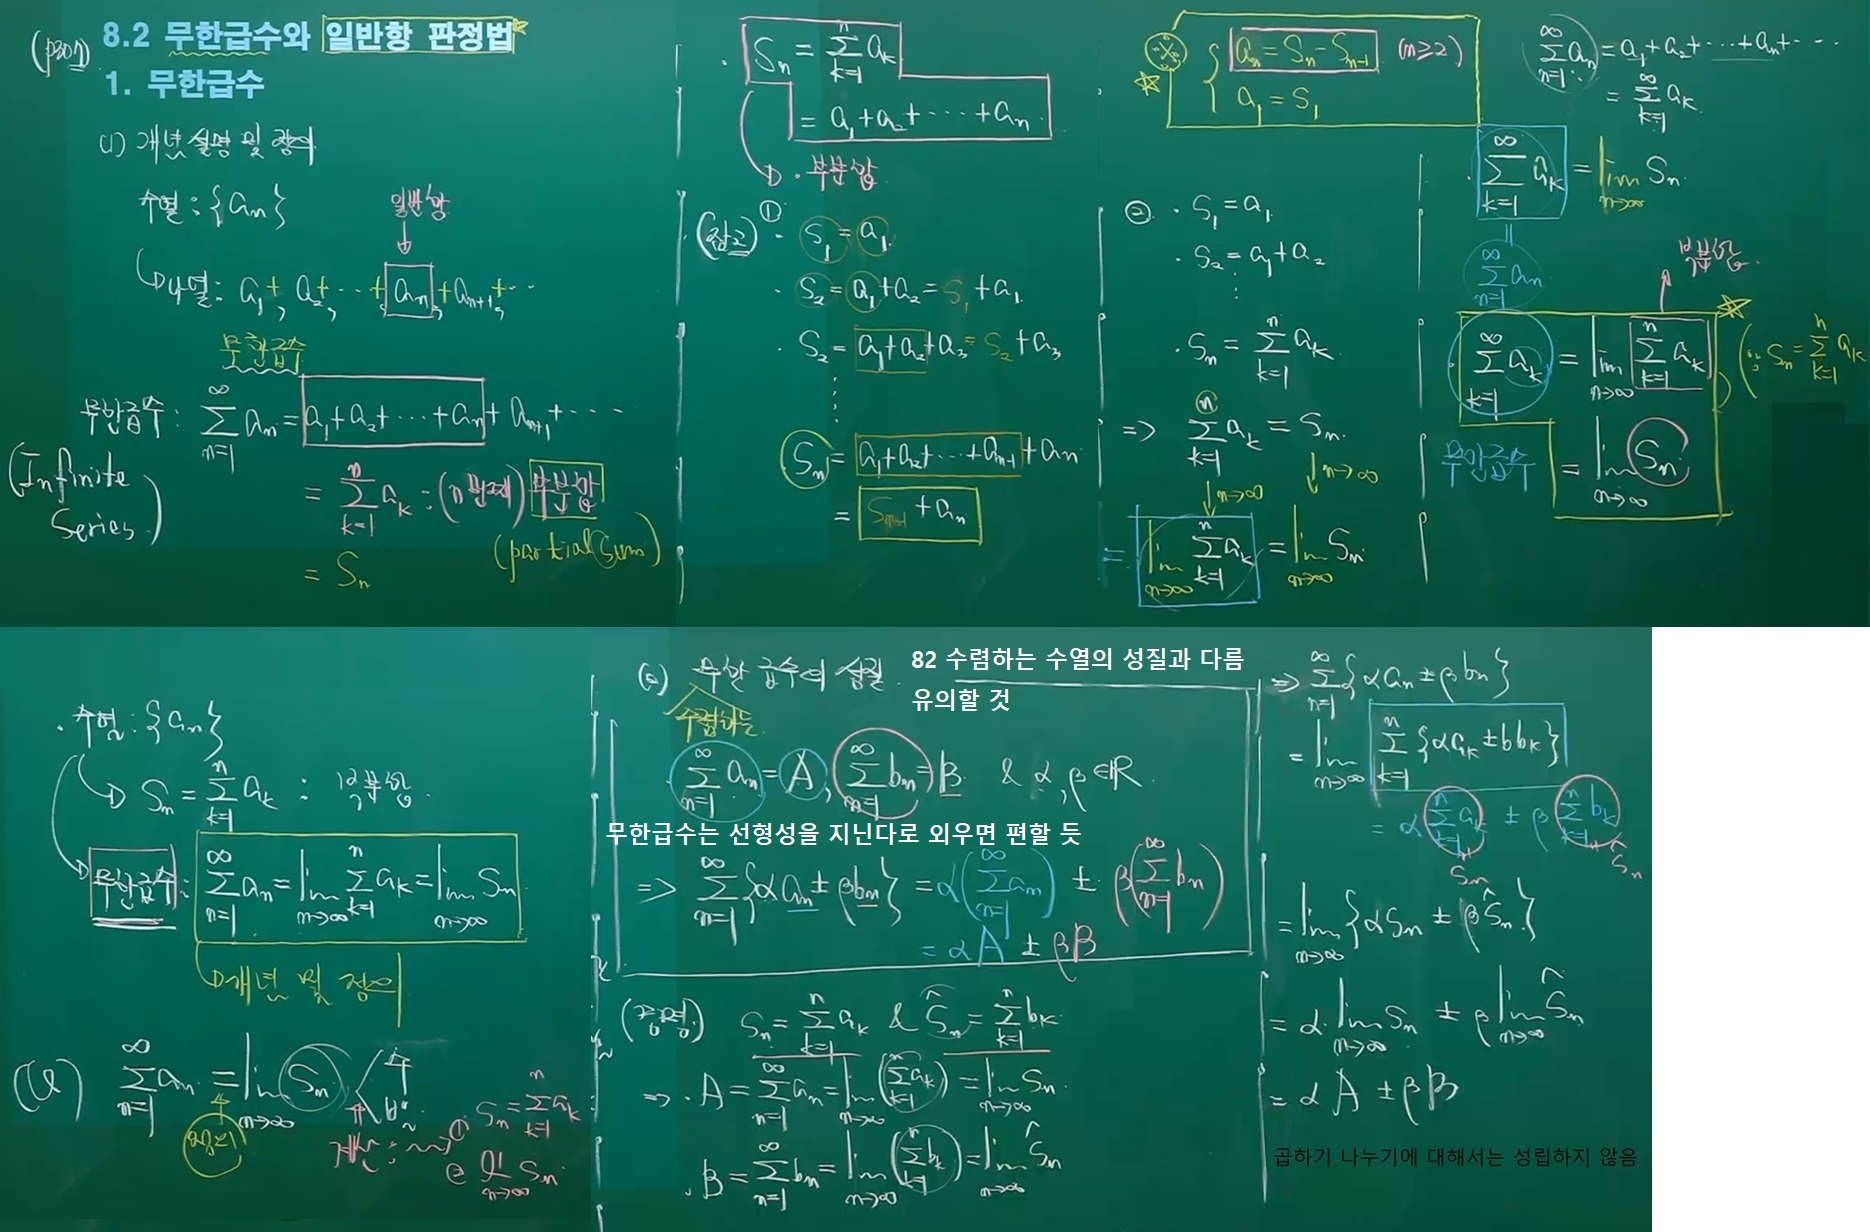 (p307)
8.2 무한급수와 일반항 판정법
1. 무한급수
(1) 개념 설명 및 정의
수열 : {aₙ}
일반항
나열 : a₁ + , a₂ + , ⋯ + , aₙ , + aₙ₊₁ + , ⋯
무한급수
무한급수 : ∑_{n=1}^{∞} aₙ = a₁+a₂+⋯+aₙ + aₙ₊₁ + ⋯
(Infinite Series)
= ∑_{k=1}^{n} aₖ : (n번째) 부분합
(partial Sum)
= Sₙ
· Sₙ = ∑_{k=1}^{n} aₖ
= a₁+a₂+⋯+aₙ
· 부분합
(참고) ① · S₁ = a₁
· S₂ = a₁+a₂ = S₁+a₁
· S₂ = a₁+a₂+a₃ = S₂+a₃
⋮
Sₙ = a₁+a₂+⋯+aₙ₋₁+aₙ
= Sₙ₋₁ + aₙ
※ { aₙ = Sₙ - Sₙ₋₁ (n≥2)
a₁ = S₁
② · S₁ = a₁
· S₂ = a₁+a₂
⋮
· Sₙ = ∑_{k=1}^{n} aₖ
=> ∑_{k=1}^{n} aₖ = Sₙ
↓ n→∞ ↓ n→∞
= lim_{n→∞} ∑_{k=1}^{n} aₖ = lim_{n→∞} Sₙ
∑_{n=1}^{∞} aₙ = a₁+a₂+⋯+aₙ+⋯
= ∑_{k=1}^{∞} aₖ
· ∑_{k=1}^{∞} aₖ = lim_{n→∞} Sₙ
||
∑_{n=1}^{∞} aₙ
부분합
∑_{k=1}^{∞} aₖ = lim_{n→∞} ∑_{k=1}^{n} aₖ (∵ Sₙ = ∑_{k=1}^{n} aₖ)
무한급수 = lim_{n→∞} Sₙ
· 수열 : {aₙ}
Sₙ = ∑_{k=1}^{n} aₖ : 부분합
무한급수 : ∑_{n=1}^{∞} aₙ = lim_{n→∞} ∑_{k=1}^{n} aₖ = lim_{n→∞} Sₙ
개념 및 정의
∑_{n=1}^{∞} aₙ = lim_{n→∞} Sₙ < 수
발
정의
계산 : ① Sₙ = ∑_{k=1}^{n} aₖ
② lim_{n→∞} Sₙ
(2) 무한급수의 성질
수렴하는
82 수렴하는 수열의 성질과 다름
유의할 것
· ∑_{n=1}^{∞} aₙ = A , ∑_{n=1}^{∞} bₙ = B & α, β ∈ ℝ
무한급수는 선형성을 지닌다로 외우면 편할 듯
=> ∑_{n=1}^{∞} {αaₙ ± βbₙ} = α(∑_{n=1}^{∞} aₙ) ± β(∑_{n=1}^{∞} bₙ)
= αA ± βB
(증명) Sₙ = ∑_{k=1}^{n} aₖ & Ŝₙ = ∑_{k=1}^{n} bₖ
=> · A = ∑_{n=1}^{∞} aₙ = lim_{n→∞} (∑_{k=1}^{n} aₖ) = lim_{n→∞} Sₙ
· B = ∑_{n=1}^{∞} bₙ = lim_{n→∞} (∑_{k=1}^{n} bₖ) = lim_{n→∞} Ŝₙ
=> ∑_{n=1}^{∞} {αaₙ ± βbₙ}
= lim_{n→∞} ∑_{k=1}^{n} {αaₖ ± bbₖ}
= α ∑_{k=1}^{n} aₖ ± β ∑_{k=1}^{n} bₖ
Sₙ Ŝₙ
= lim_{n→∞} {αSₙ ± βŜₙ}
= α lim_{n→∞} Sₙ ± β lim_{n→∞} Ŝₙ
= αA ± βB
곱하기 나누기에 대해서는 성립하지 않음